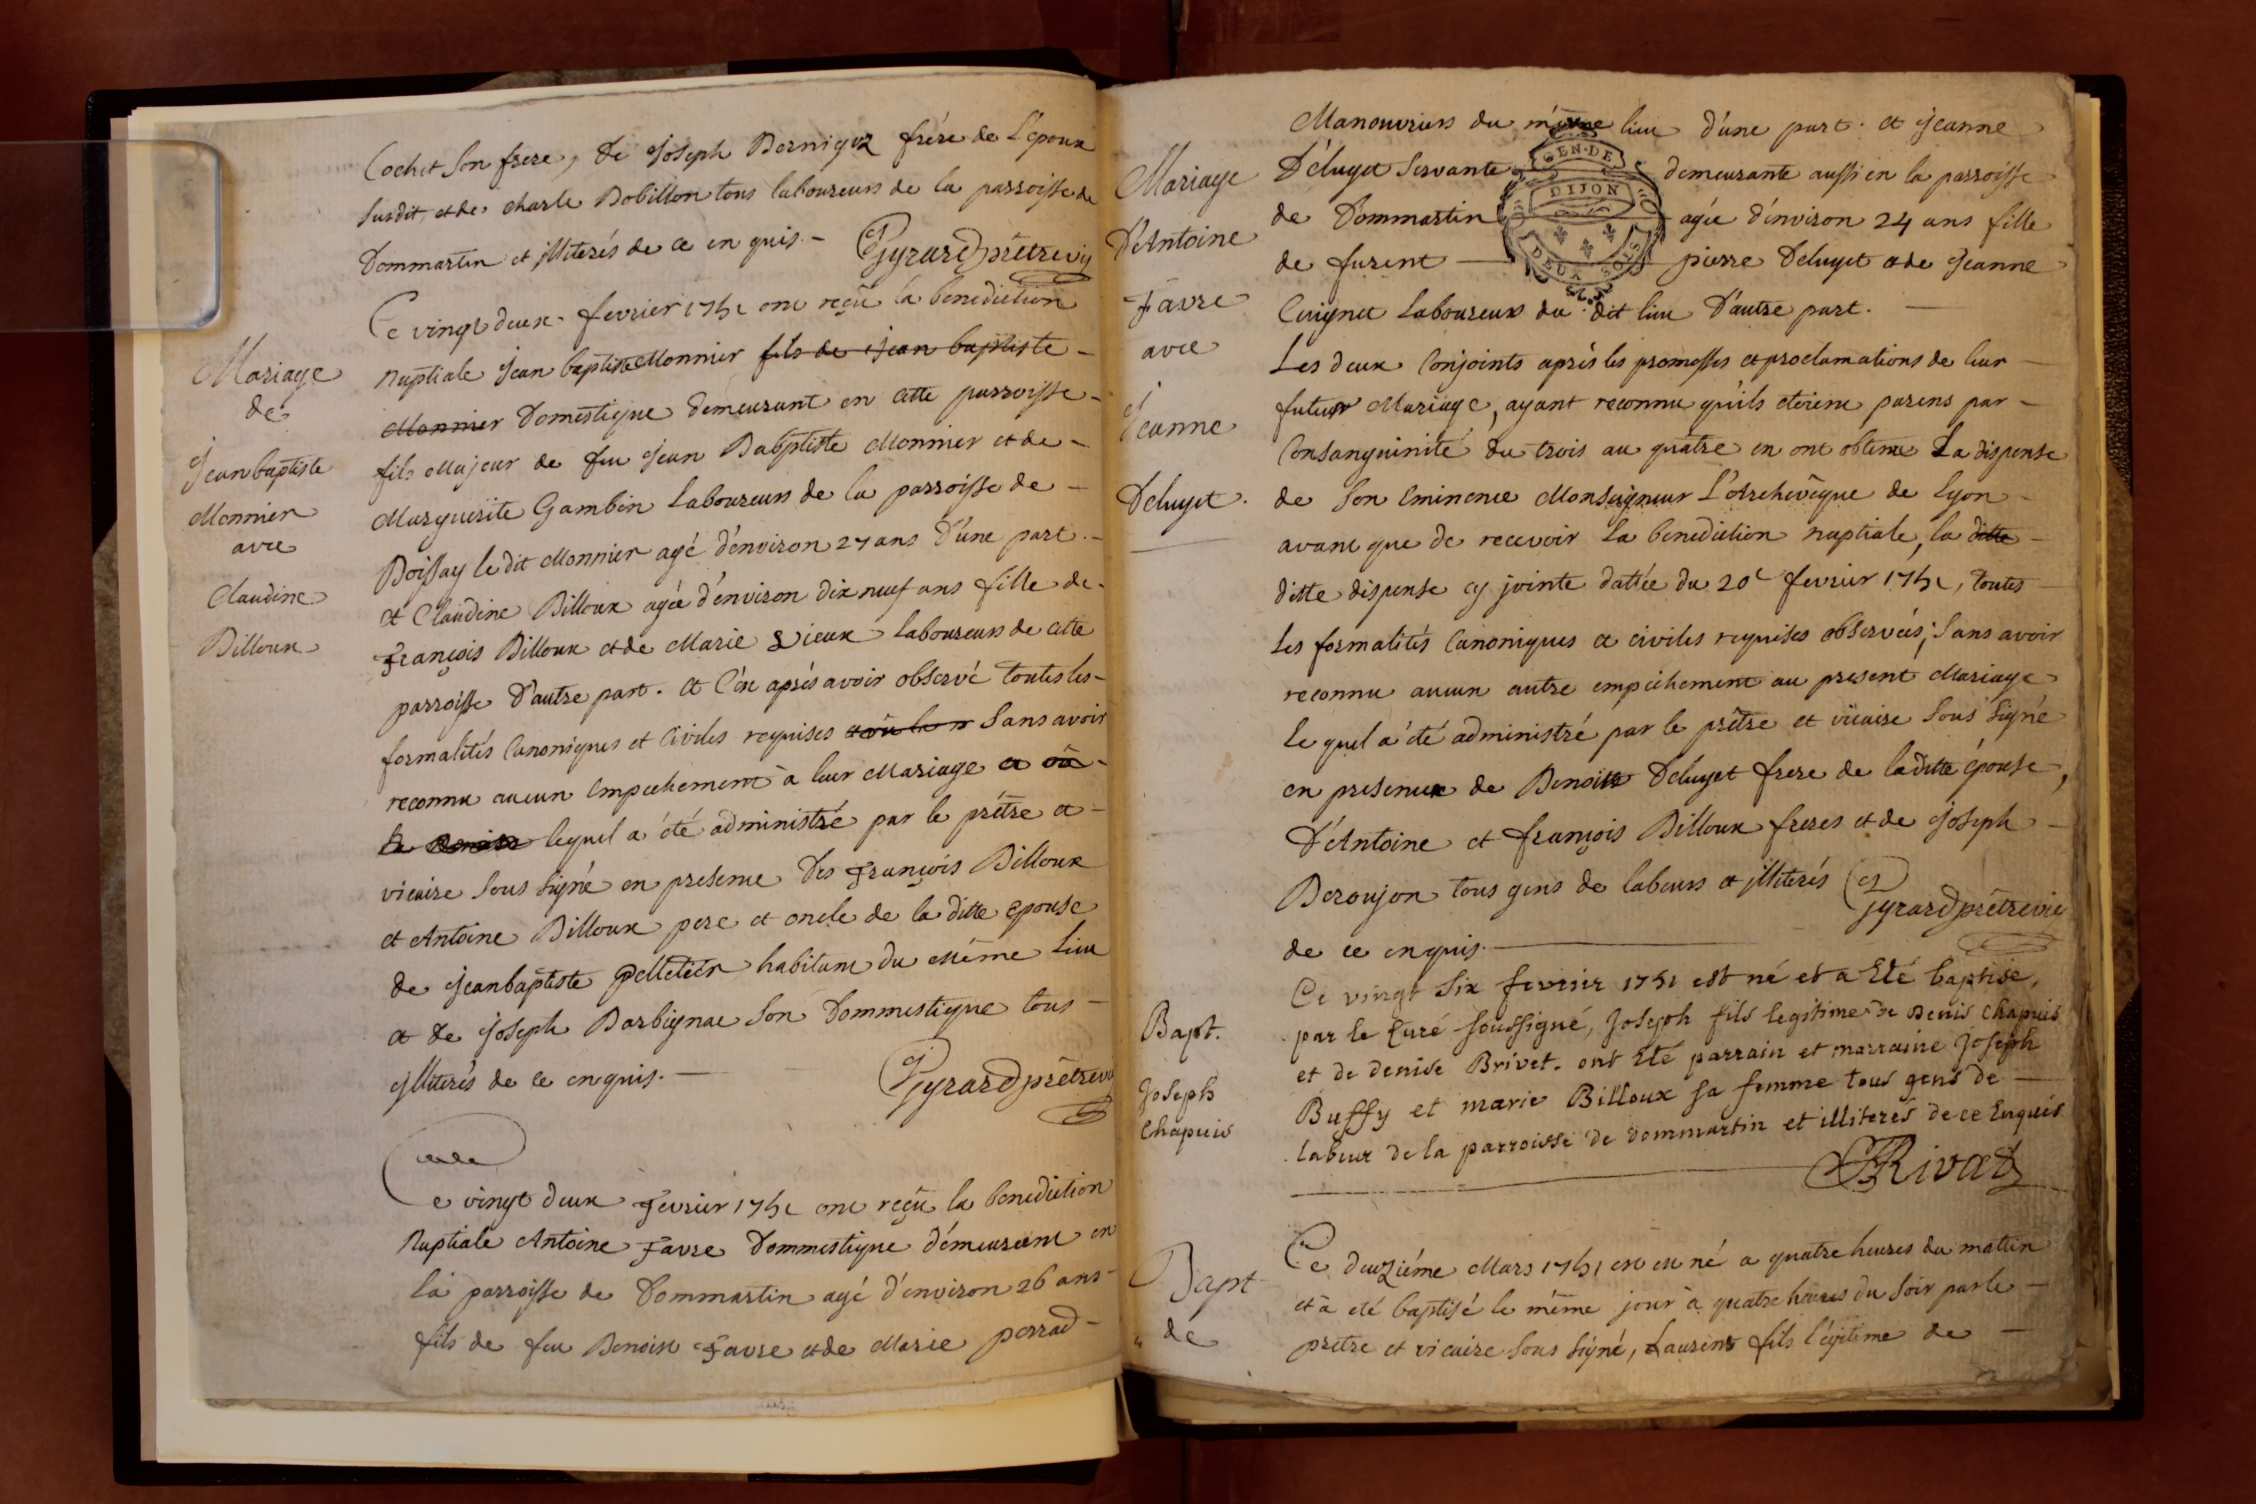 Cochet son frere, de Joseph Bernigoz frére de L'époux
susdit, et de charle Dobillon tous laboureurs de la parroisse de
Dommartin et illiterés de ce enquis. — Gyrard prêtre vic
Ce vingt deux fevrier 1751 ont reçu la benediction
nuptiale jean baptiste Monnier fils de jean baptiste —
Monnier Domestique demeurant en cette parroisse —
fils Majeur de feu jean Babptiste Monnier et de —
Marguerite Gambin Laboureurs de la parroisse de —
Boissay le dit Monnier agé d'environ 27 ans D'une part. —
et Claudine Billoux agée d'environ dix neuf ans fille de
François Billoux et de Marie Vieux Laboureurs de cette
parroisse D'autre part. et C'én aprés avoir observé toutes les
formalités Canoniques et Civiles requises Sans avoir
reconnu aucun Empechement à leur Mariage et
lequel a été administré par le prêtre et —
vicaire sous signé en presence Des François Billoux
et Antoine Billoux pere et oncle de la ditte epouse
de jean baptiste pelletier habitant du méme Lieu
et de joseph Barbignac Son Dommestique tous —
illiterés de ce enquis. — Gyrard prêtre vic
Mariage
de
jean baptiste
Monnier
avec
Claudine
Billoux
Ce vingt deux Fevrier 1751 ont reçu la benediction
Nuptiale Antoine Favre Dommestique démeurant en
la parroisse de Dommartin agé d'environ 26 ans
fils de feu Benoist Favre et de Marie perrad —
Manouvriers du méme lieu d'une part. et jeanne
Déluget servante demeurante aussi en la parroisse
de Dommartin agée d'environ 24 ans fille
de furent — pierre Deluget et de jeanne
Cuignet Laboureurs du dit lieu D'autre part. —
GEN·DE
DIJON
DEUX SOLS
Les deux Conjoints aprés les promesses et proclamations de leur —
futur Mariage, ayant reconnu qu'ils etoient parens par —
Consanguinité du trois au quatre en ont obtenu La dispense
de Son Eminence Monseigneur L'Archevêque de Lyon —
avant que de recevoir la benediction nuptiale, la ditte —
ditte dispense cy jointe dattée du 20e fevrier 1751, toutes
les formalités Canoniques et civiles requises observées; Sans avoir
reconnu aucun autre empéchement au present Mariage
le quel a été administré par le prêtre et vicaire sous signé
en presence de Benoitt Deluget frere de laditte épouse,
D'Antoine et françois Billoux freres et de joseph —
Deroujon tous gens de labeurs et illiterés Gyrard prêtre vic
de ce enquis. —
Mariage
D'Antoine
Favre
avec
Jeanne
Deluget.
Ce vingt Six fevrier 1751 est né et a Eté baptisé,
par le Curé soussigné, Joseph fils legitime de Denis Chapuis
et de denise Brivet. ont Eté parrain et marraine Joseph
Buffy et marie Billoux sa femme tous gens de —
labeur de la parroisse de dommartin et illiterés de ce Enquis
Rivat
Bapt.
Joseph
Chapuis
Ce deuziéme Mars 1751 est en né a quatre heures du matin
et a eté baptisé le méme jour à quatre heures du Soir par le —
prêtre et vicaire sous signé, Laurent fils légitime de —
Bapt
de